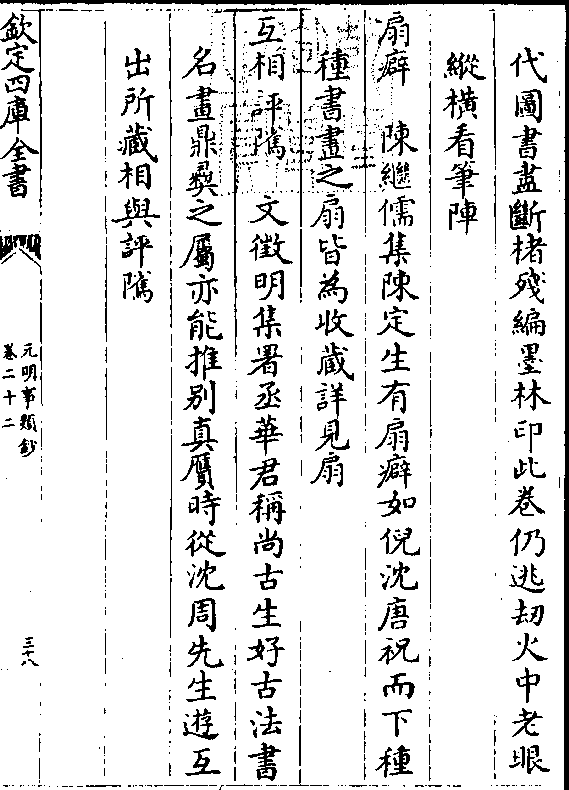 代圖書盡斷楮殘編墨林印此卷仍逃刼火中老眼
縱横看筆陣
扇癖　陳繼儒集陳定生有扇癖如倪沈唐祝而下種
種書畫之扇皆為收藏詳見扇
互相評隲　文徵明集署丞華君稱尚古生好古法書
名畫鼎彝之屬亦能推别真贋時從沈周先生遊互
出所藏相與評隲
欽定四庫全書
元明事類鈔
卷二十二
三十八